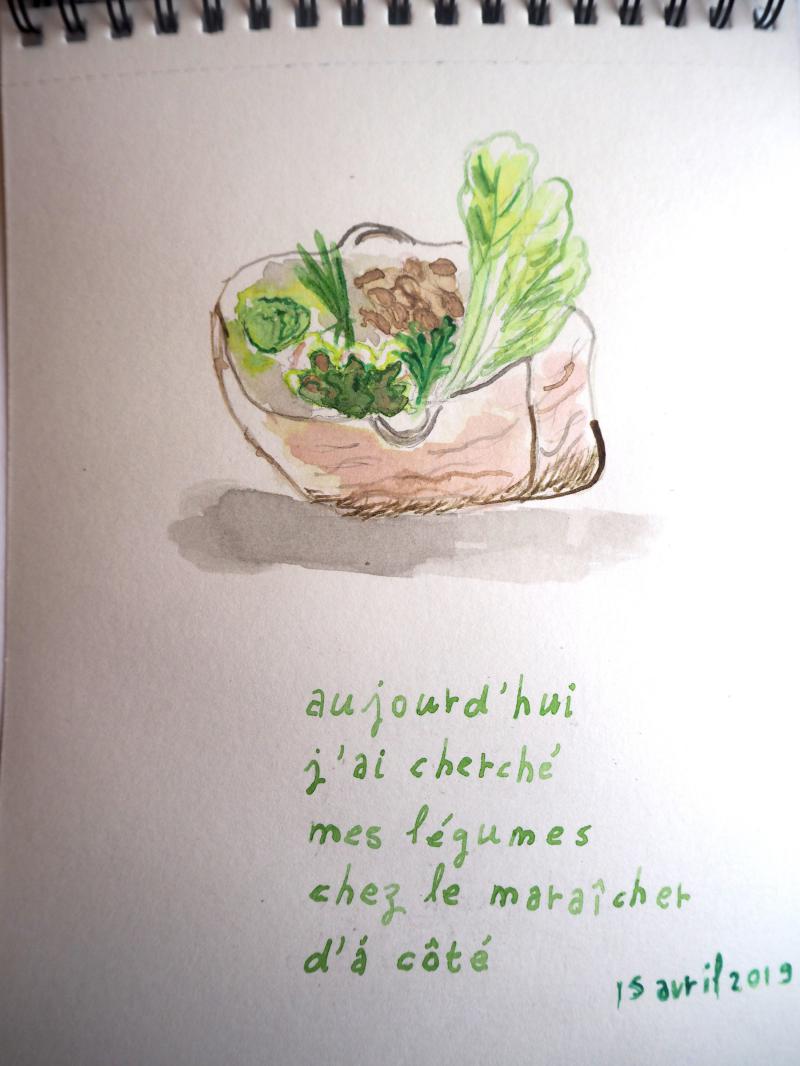 aujourd'hui
j'ai cherché
mes légumes
chez le maraîcher
d'á côté
15 avril 2019